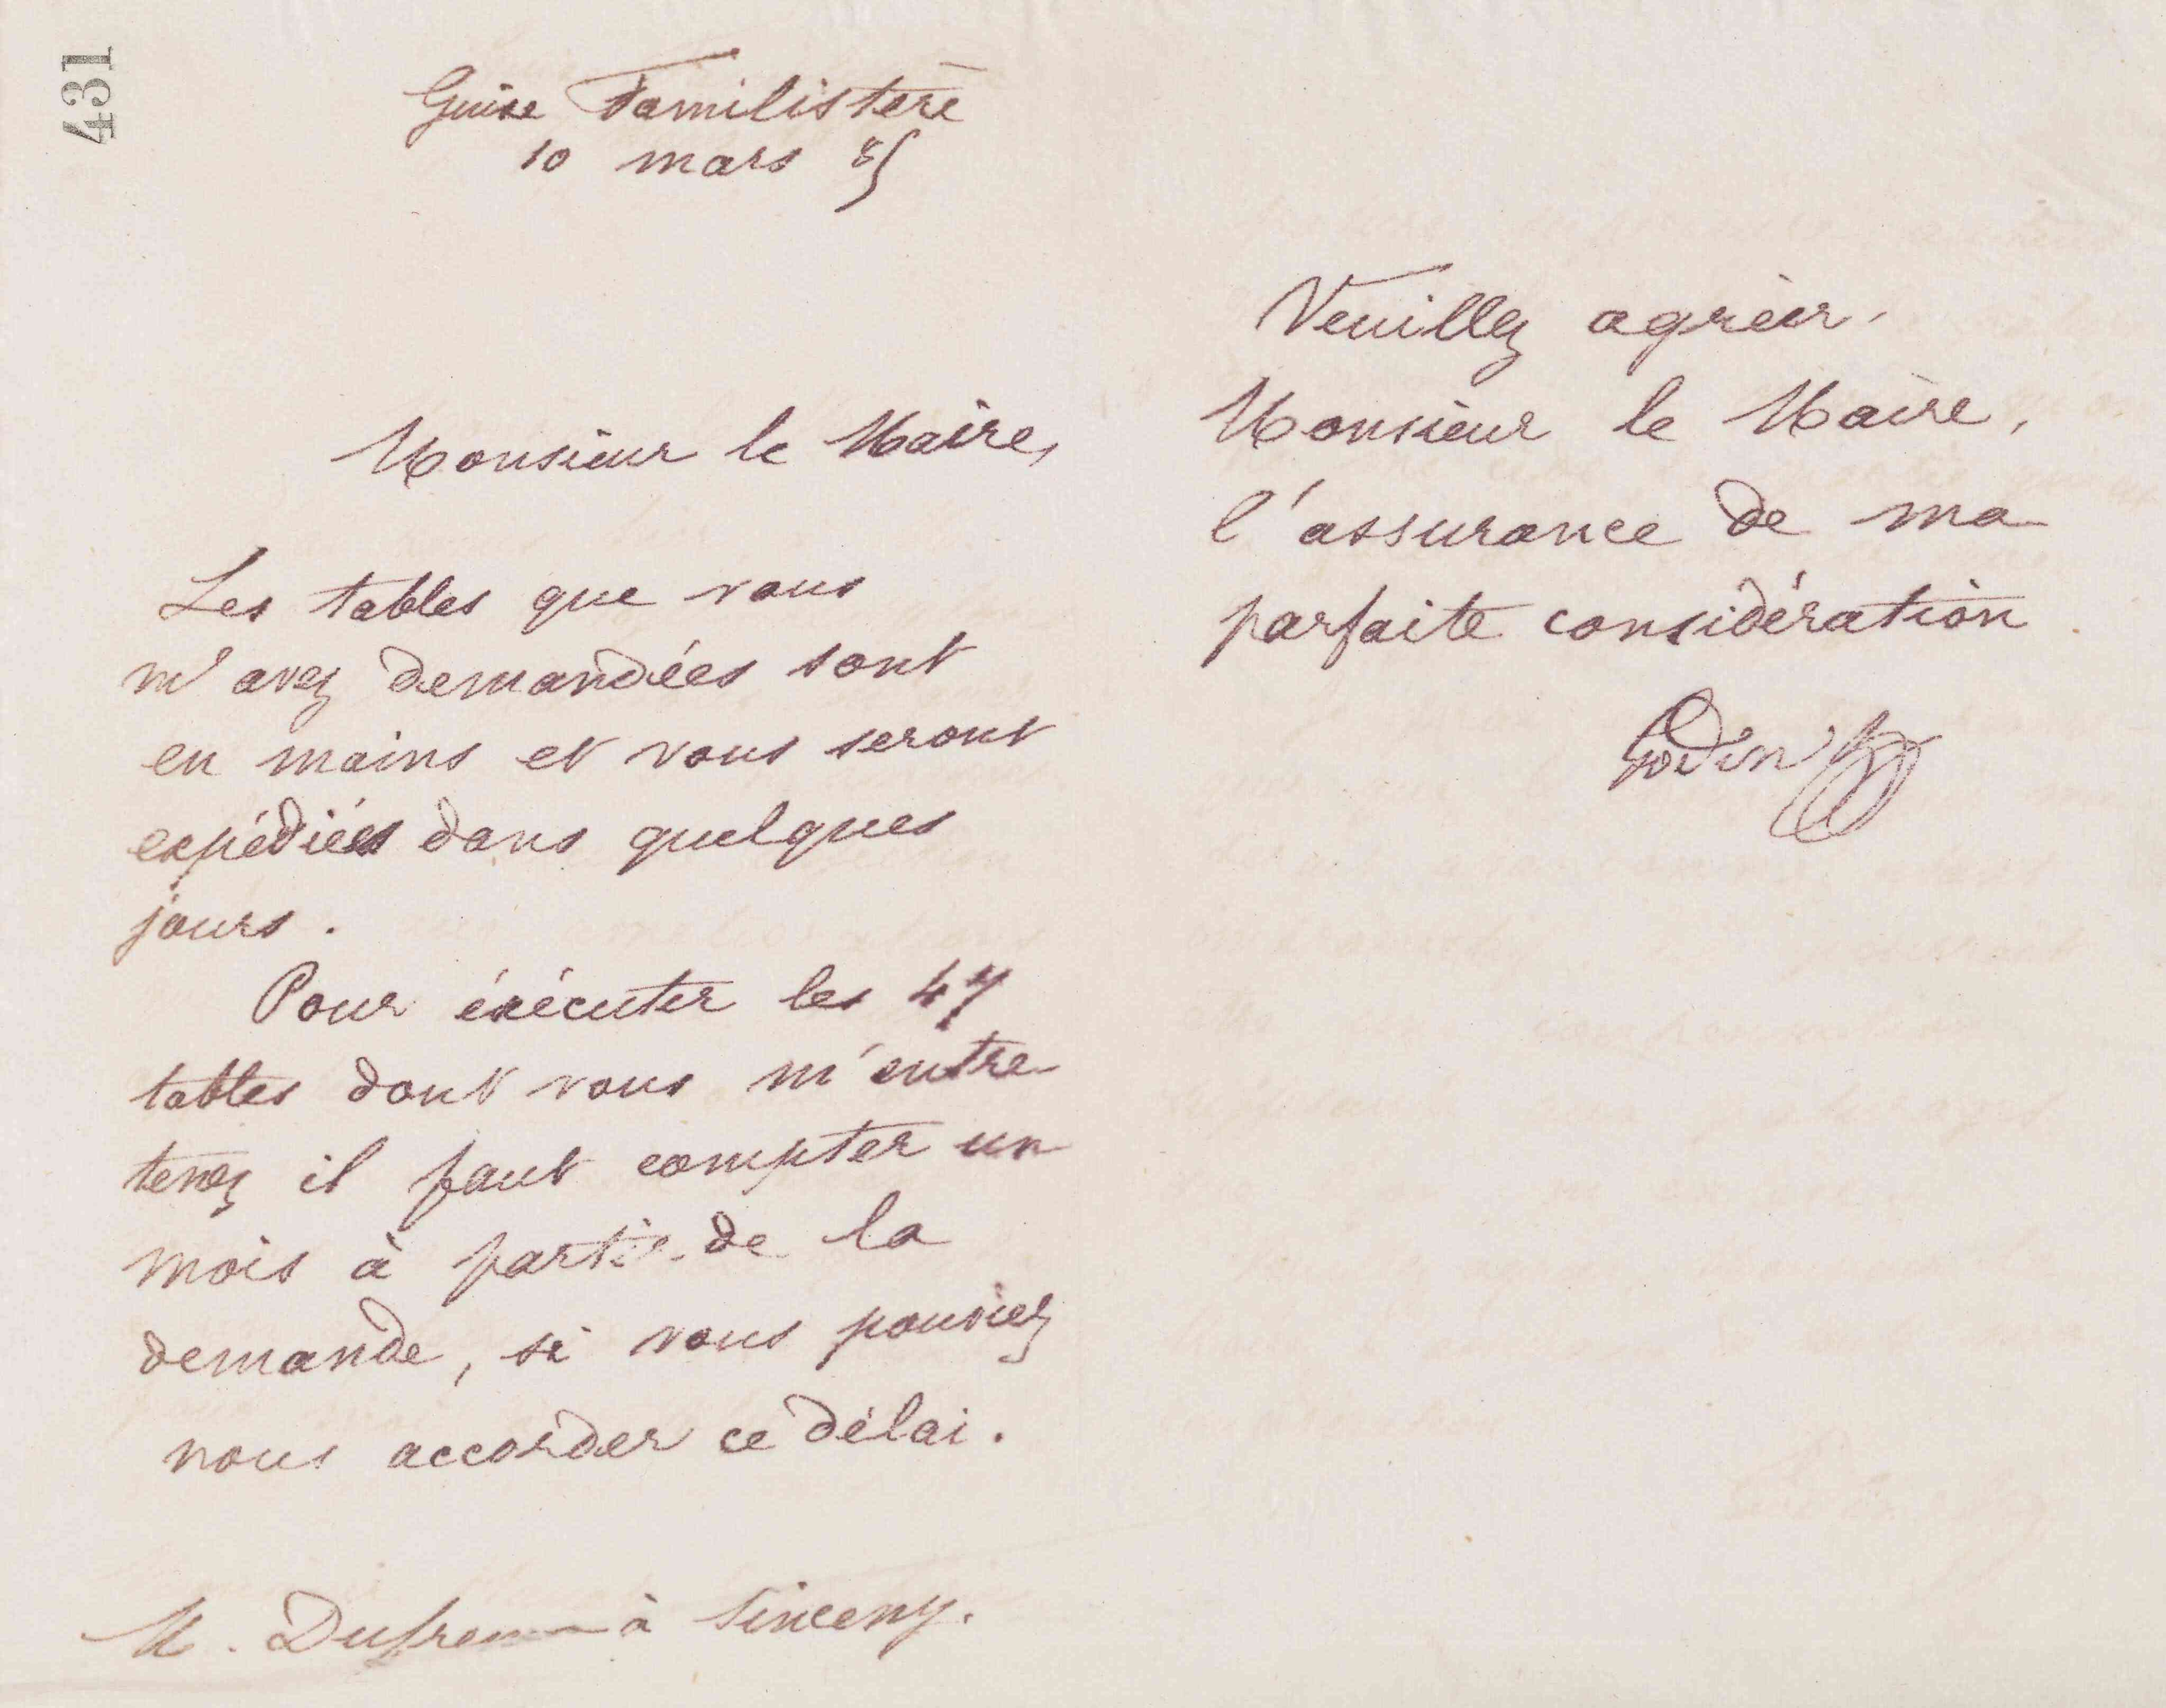 431
Guise Familistère
10 mars 85
Monsieur le Maire,
Les tables que vous
m'avez demandées sont
en mains et vous seront
expédiées dans quelques
jours.
Pour éxécuter les 47
tables dont vous m'entre
tenez il faut compter un
mois à partir de la
demande, si vous pouviez
nous accorder ce délai.
M. à Sinceny.
Veuillez agréer,
Monsieur le Maire,
l'assurance de ma
parfaite considération
Godin